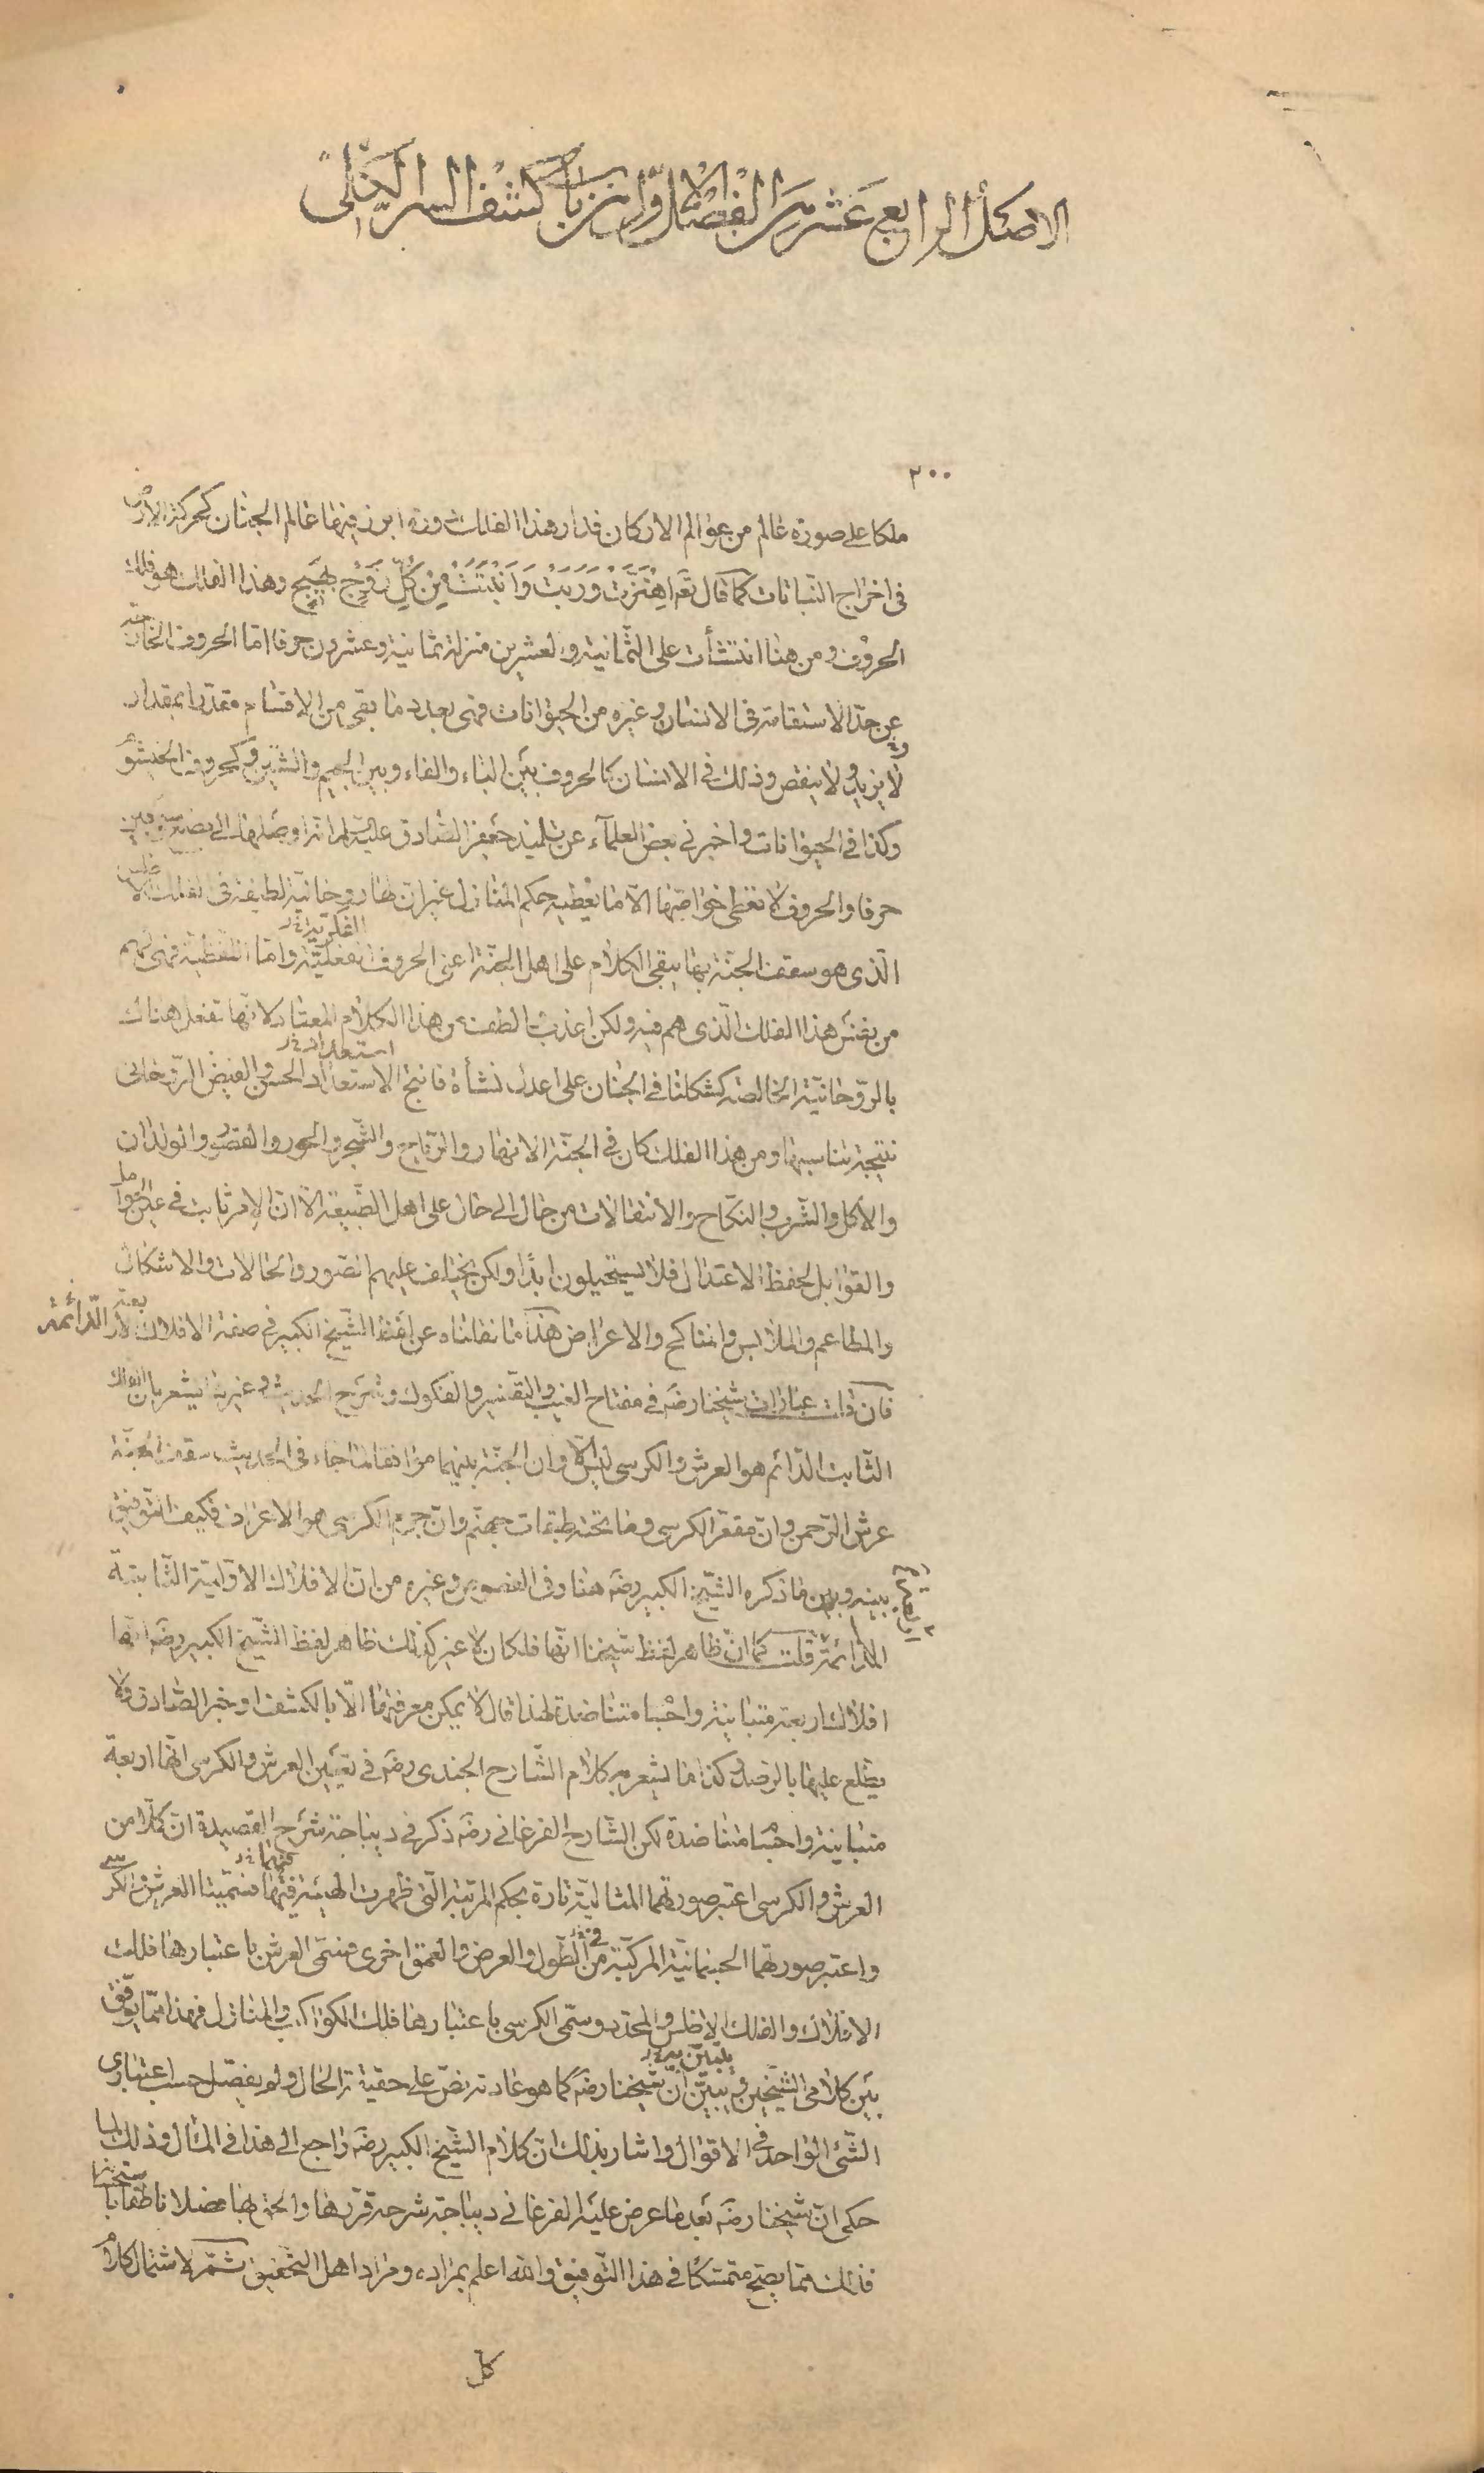 الاصل الرابع عشر من الفصل الاول من باب كشف السر الكلى
٢٠٠
ملكا على صورة عالم من عوالم الاركان فدار هذا الفلك دورة ابرز فيها عالم الجنان كحركة الارض
فى اخراج النباتات كما قال تع اهْتَزَّتْ وَرَبَتْ وَاَنْبَتَتْ مِنْ كُلِّ زَوْجٍ بَهِيجٍ وهذا الفلك هو فلك
الحروف ومن هنا انتشأت على الثّمانية والعشرين منزلة ثمانية وعشرون حرفا اما الحروف الخارجة
عن حدّ الاستقامة فى الانسان وغيره من الحيوانات فهى بعدد ما بقى من الاقسام مقدّرا بمقدار
لا يزيد ولا ينقص وذلك فى الانسان كالحروف بين الباء والفاء وبين الجيم والشين وكحروف الخيشوم
وكذا فى الحيوانات واخبرنى بعض العلماء عن تلميذ جعفر الصّادق عليه انه اوصلها الى بضع وسبعين
حرفا والحروف لا تعطى خواصّها الّا ما يعطيه حكم المنازل غير ان لها روحانيّة لطيفة فى الفلك الاطلس
الّذى هو سقف الجنّة بها يبقى الكلام على اهل الجنّة اعنى الحروف الفعليّة واما اللّفظيّة فهى لهم
الفكريّة نخ
من نفس هذا الفلك الّذى هم فيه ولكن اعذب والطف من هذا الكلام المعتاد لانّها تفعل هناك
بالرّوحانيّة الخالصة كشكلنا فى الجنان على اعدل نشأة فانتج الاستعداد الحسن والفيض الرّوحانى
استعداد نخ
نتيجة تناسبها ومن هذا الفلك كان فى الجنّة الانهار والرّياح والشّجر والحور والقصور والولدان
والاكل والشّرب والنكاح والانتقالات من حال الى حال على اهل الطّبيعة الّا انّ الامر ثابت فى عين الحوامل
والقوابل لحفظ الاعتدال فلا يستحيلون ابدًا ولكن يختلف عليهم الصّور والحالات والاشكال
والمطاعم والملابس والمناكح والاعراض هذا ما نقلناه عن لفظ الشّيخ الكبير فى صفة الافلاك الاربعة الدّائمة
فان قلت عبارات شيخنا رضه فى مفتاح الغيب والتفسير والفكوك وشرح الحديث وغيرها يشعر بان الفلك
الثّابت الدّائم هو العرش والكرسى ليس الّا وان الجنّة بينهما موافقا لما جاء فى الحديث سقف الجنّة
عرش الرّحمن وانّ مقعّر الكرسى وما تحته طبقات جهنّم وانّ جرم الكرسى هو الاعراف فكيف التّوفيق
بينه وبين ما ذكره الشّيخ الكبير رضه هنا وفى الفصوص وغيره من انّ الافلاك الاوّليّة الثّابتة
الدّائمة قلت كما انّ ظاهر لفظ شيخنا انّها فلكان لا غير كذلك ظاهر لفظ الشّيخ الكبير رضه انّها
افلاك اربعة متباينة واجسام متناضدة لهذا قال لا يمكن معرفتها الّا بالكشف او خبر الصّادق ولا
يطّلع عليها بالرصد وكذا ما يشعر به كلام الشّارح الجندى رضه فى تعيين العرش والكرسى انّها اربعة
متباينة واجسام متناضدة لكن الشّارح الفرغانى رضه ذكر فى ديباجة شرح القصيدة انّ كلّا من
العرش والكرسى اعتبر صورتهما المثاليّة تارة بحكم المرتبة الّتى ظهرت الهيئة فيها فسمّيتا العرش والكرسى
فيهما نخ
واعتبر صورتهما الجسمانيّة المركّبة من الطّول والعرض والعمق اخرى فسمّى العرش باعتبارها فلك
فى نخ
الافلاك والفلك الاطلس والمحدّد وسمّى الكرسى باعتبارها فلك الكواكب والمنازل فهذا ممّا يوفّق
بين كلامى الشّيخين ويبيّن انّ شيخنا رضه كما هو عادته نصّ على حقيقة الحال ولم يفصّل حسب اعتبارى
الشّئ الواحد فى الاقوال واشار بذلك انّ كلام الشّيخ الكبير رضه راجع الى هذا فى المآل وذلك لما
حكى انّ شيخنا رضه بعد ما عرض عليه الفرغانى ديباجة شرحه قرّرها والحق بها فضلا ناطقا باستحسانها
فذلك ممّا يصحّ متمسّكا فى هذا التّوفيق والله اعلم بمراده ومراد اهل التّحقيق ثمّ لاشتمال كلام
كل